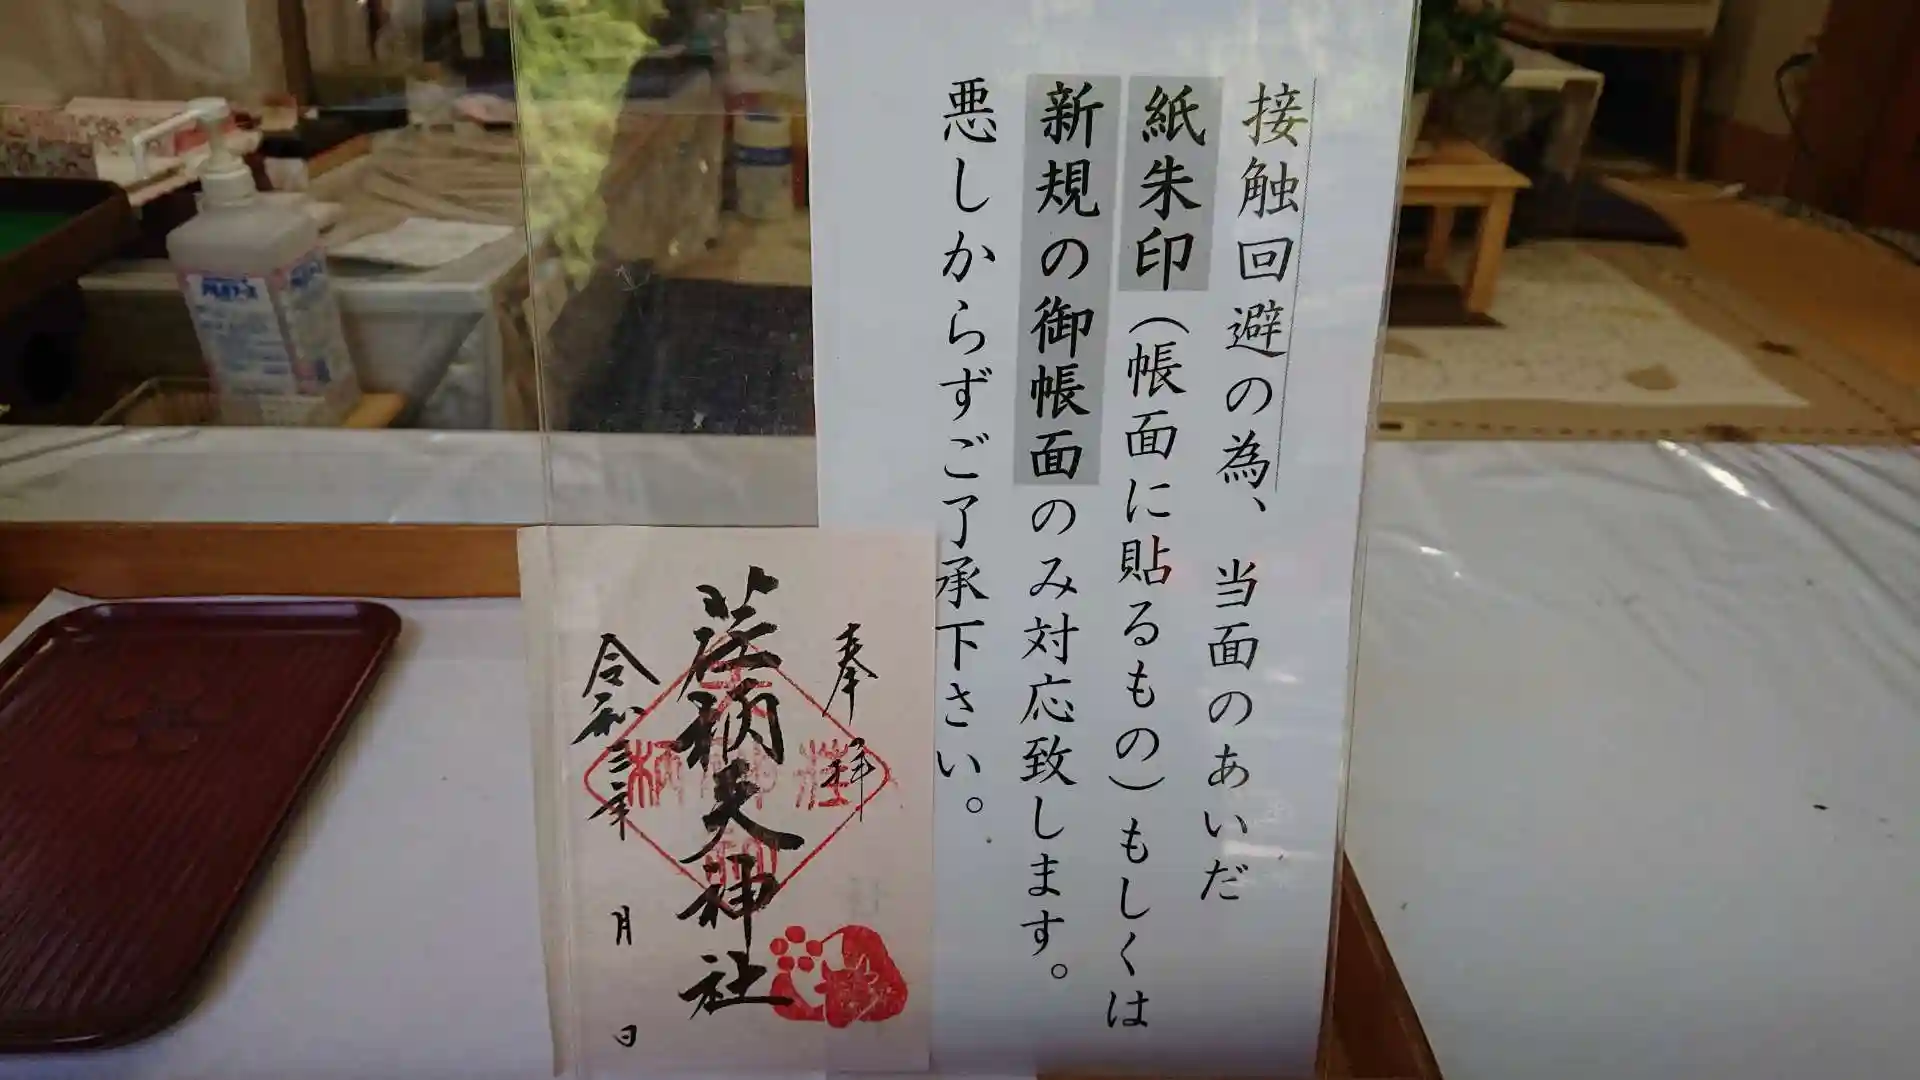 接触回避の為、当面のあいだ
紙朱印（帳面に貼るもの）もしくは
新規の御帳面のみ対応致します。
悪しからずご了承下さい。
奉拝
荏柄天神社
令和三年
月
日